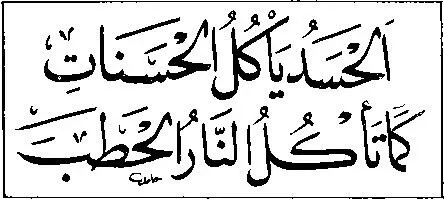 اَلْحَسَدُ يَأْكُلُ الْحَسَنَاتِ
كَمَا تَأْكُلُ النَّارُ الْحَطَبَ